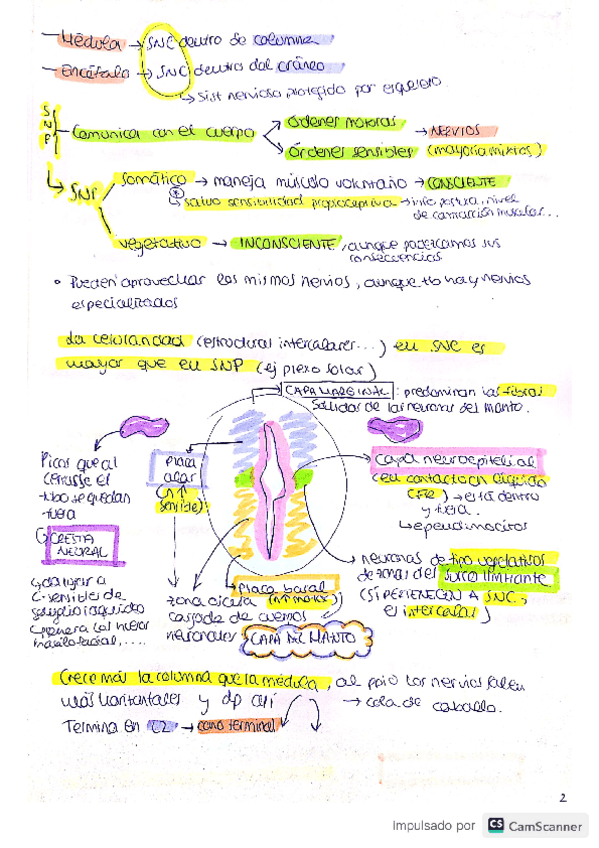 Médula → SNC dentro de columna
Encéfalo → SNC dentro del cráneo
↳ Sist nervioso protegido por esqueleto
SNP
Comunica con el cuerpo
Órdenes motoras
Órdenes sensibles (mayoría mixtos)
→ NERVIOS
↳ SNP
Somático → maneja músculo voluntario → CONSCIENTE
* ↳ salvo sensibilidad propioceptiva → info postura, nivel
de contracción muscular...
vegetativo → INCONSCIENTE, aunque padezcamos sus
consecuencias
• Pueden aprovechar los mismos nervios, aunque no hay nervios
especializados
La celularidad (estructuras intercalares...) en SNC es
mayor que en SNP (ej plexo solar)
→ CAPA MARGINAL: predominan las fibras
salidas de las neuronas del manto.
Picos que al
cerrarse el
tubo se quedan
fuera
↳ CRESTA
NEURAL
↳ da lugar a
C. sensible de
ganglio raquídeo
↳ genera
Placa
alar
(n↑
sensible)
Capa neuroepitelial
(en contacto con líquido
→ está dentro
y fuera.
↳ ependimocitos
→ neuronas de tipo vegetativos
de zonas del surco limitante
(SÍ PERTENECEN A SNC,
el intercalar)
Placa basal
(n↑ motor)
zona
cargada de cuerpos
neuronales
CAPA DEL MANTO
Crece más la columna que la médula, al ppio los nervios salen
más horizontales y dp así
→ cola de caballo.
Termina en L2 → cono terminal
2
Impulsado por CS CamScanner